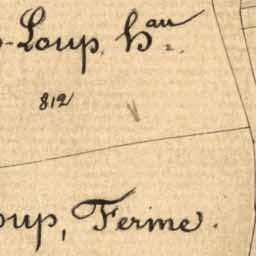 -Loup, hau.
812
oup, Ferme.